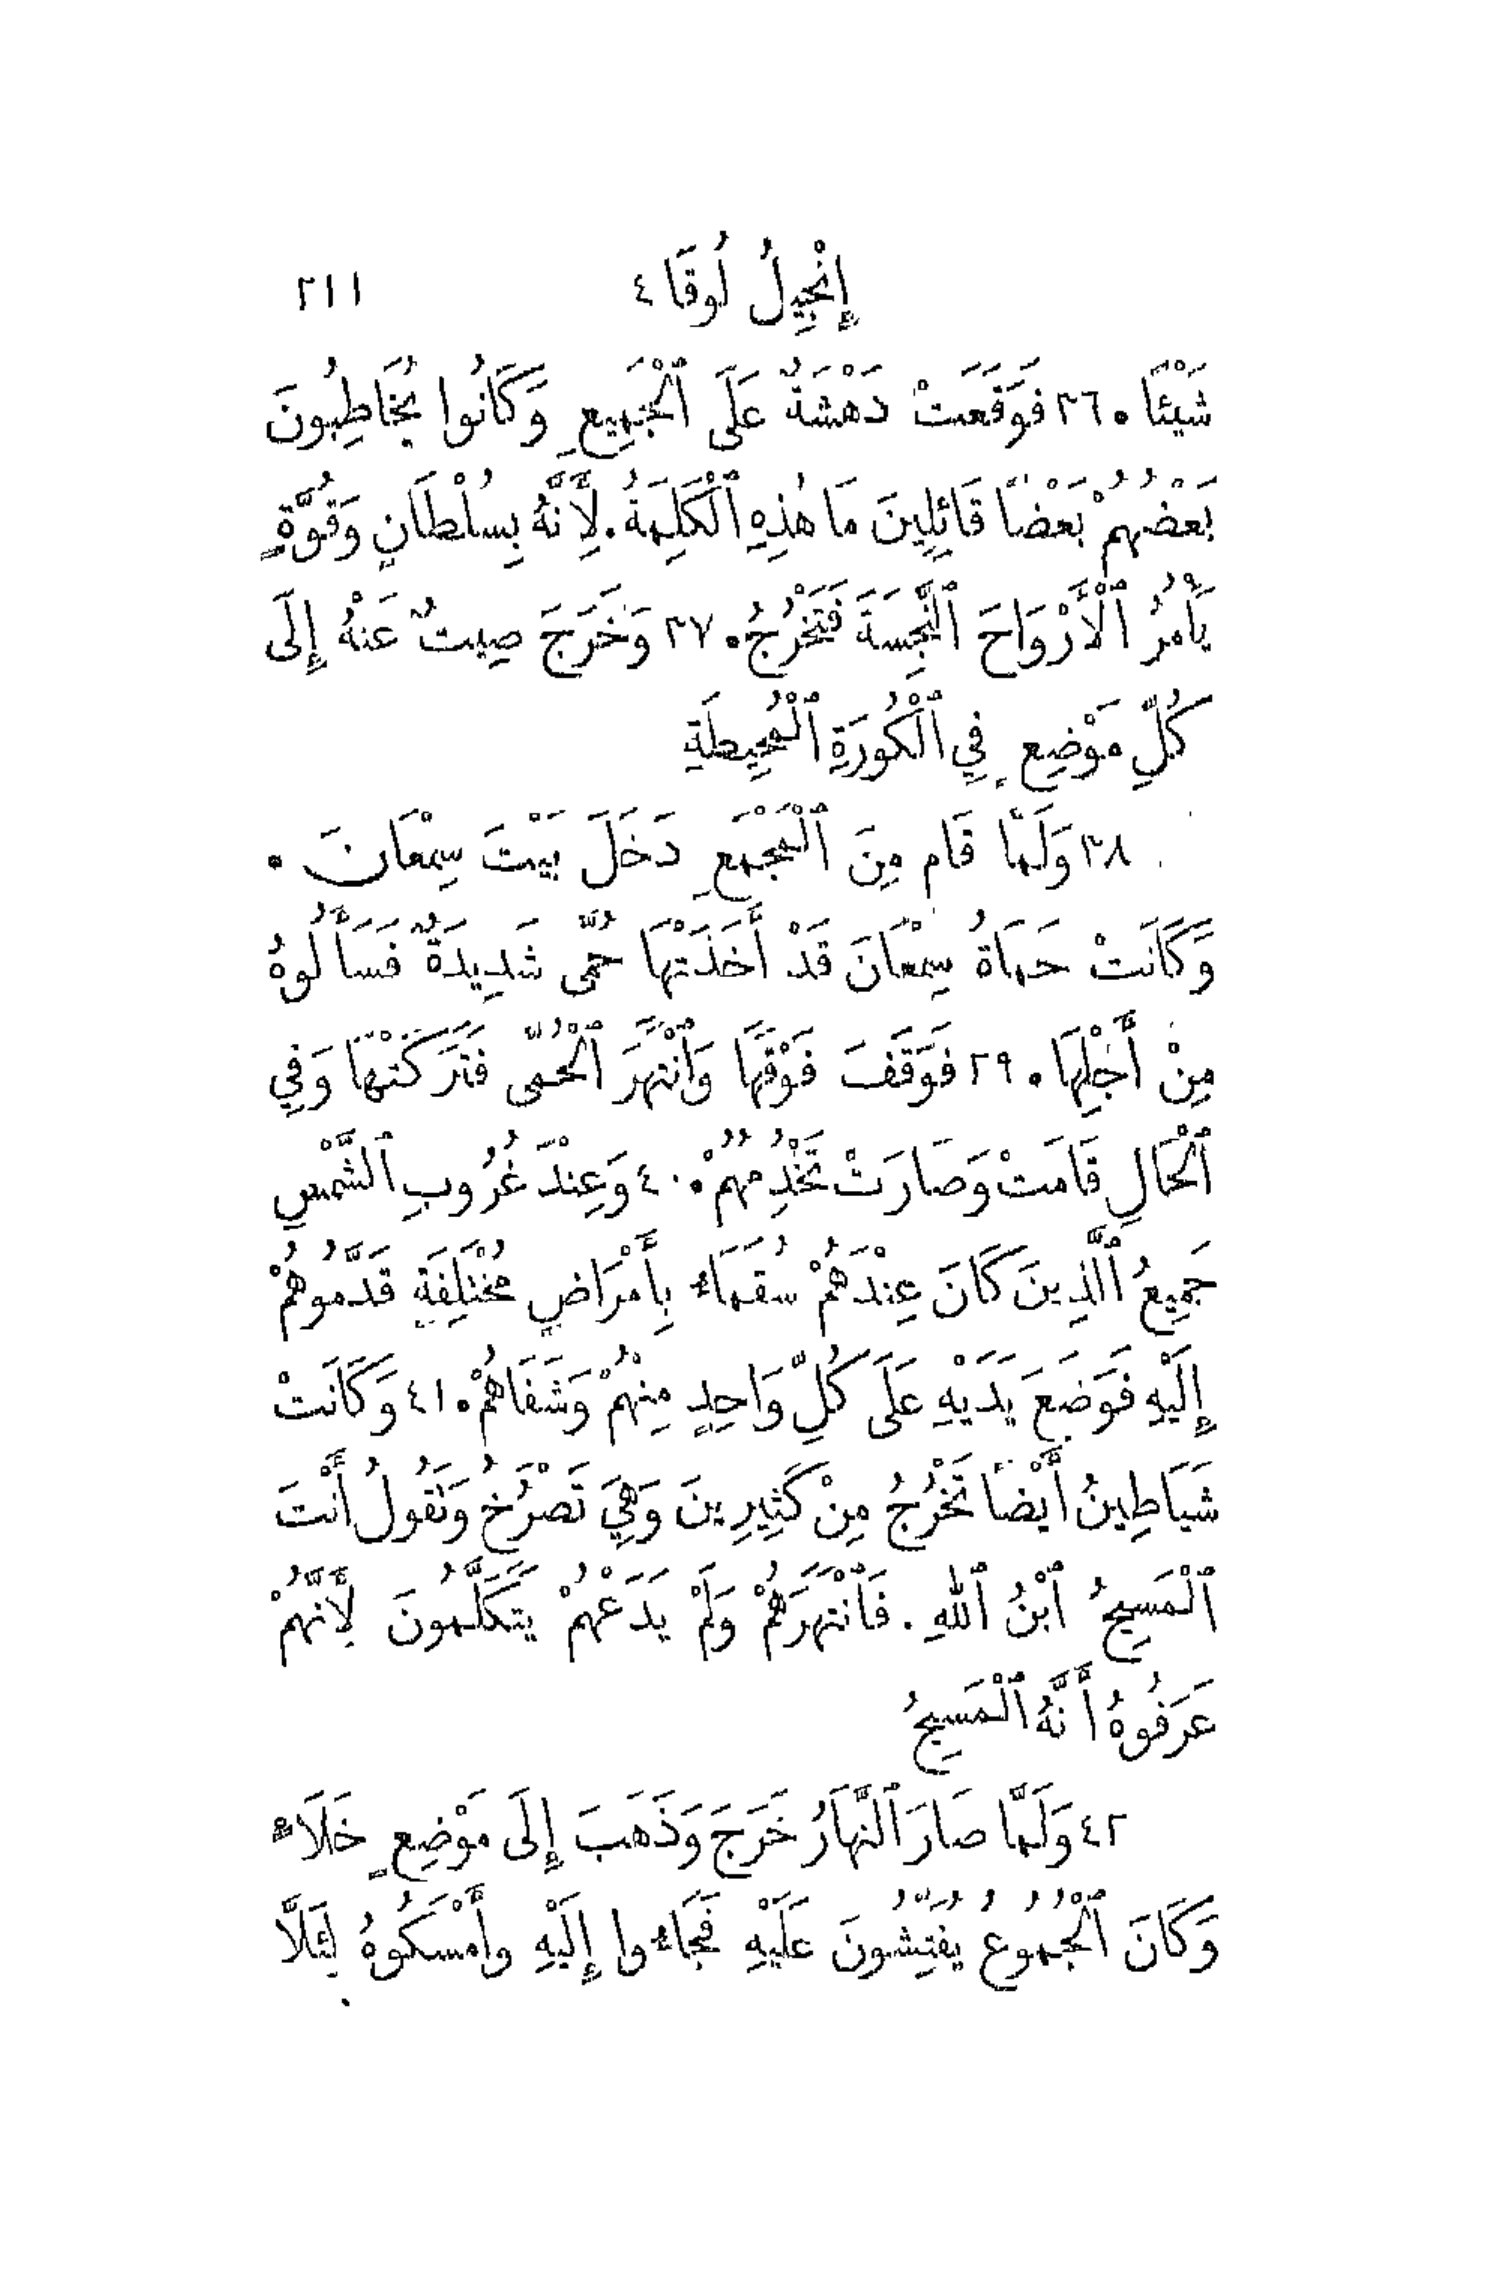 إِنْجِيلُ لُوقَا ٤ ٢١١
شَيْئًا . ٣٦ فَوَقَعَتْ دَهْشَةٌ عَلَى ٱلْجَمِيعِ وَكَانُوا يُخَاطِبُونَ
بَعْضُهُمْ بَعْضًا قَائِلِينَ مَا هٰذِهِ ٱلْكَلِمَةُ . لِأَنَّهُ بِسُلْطَانٍ وَقُوَّةٍ
يَأْمُرُ ٱلْأَرْوَاحَ ٱلنَّجِسَةَ فَتَخْرُجُ . ٣٧ وَخَرَجَ صِيتٌ عَنْهُ إِلَى
كُلِّ مَوْضِعٍ فِي ٱلْكُورَةِ ٱلْمُحِيطَةِ
٣٨ وَلَمَّا قَامَ مِنَ ٱلْمَجْمَعِ دَخَلَ بَيْتَ سِمْعَانَ .
وَكَانَتْ حَمَاةُ سِمْعَانَ قَدْ أَخَذَتْهَا حُمَّى شَدِيدَةٌ فَسَأَلُوهُ
مِنْ أَجْلِهَا . ٣٩ فَوَقَفَ فَوْقَهَا وَٱنْتَهَرَ ٱلْحُمَّى فَتَرَكَتْهَا وَفِي
ٱلْحَالِ قَامَتْ وَصَارَتْ تَخْدُمُهُمْ . ٤٠ وَعِنْدَ غُرُوبِ ٱلشَّمْسِ
جَمِيعُ ٱلَّذِينَ كَانَ عِنْدَهُمْ سُقَمَاءُ بِأَمْرَاضٍ مُخْتَلِفَةٍ قَدَّمُوهُمْ
إِلَيْهِ فَوَضَعَ يَدَيْهِ عَلَى كُلِّ وَاحِدٍ مِنْهُمْ وَشَفَاهُمْ . ٤١ وَكَانَتْ
شَيَاطِينُ أَيْضًا تَخْرُجُ مِنْ كَثِيرِينَ وَهِيَ تَصْرُخُ وَتَقُولُ أَنْتَ
ٱلْمَسِيحُ ٱبْنُ ٱللهِ . فَٱنْتَهَرَهُمْ وَلَمْ يَدَعْهُمْ يَتَكَلَّمُونَ لِأَنَّهُمْ
عَرَفُوهُ أَنَّهُ ٱلْمَسِيحُ
٤٢ وَلَمَّا صَارَ ٱلنَّهَارُ خَرَجَ وَذَهَبَ إِلَى مَوْضِعٍ خَلَاءٍ
وَكَانَ ٱلْجُمُوعُ يُفَتِّشُونَ عَلَيْهِ فَجَاءُوا إِلَيْهِ وأَمْسَكُوهُ لِئَلَّا